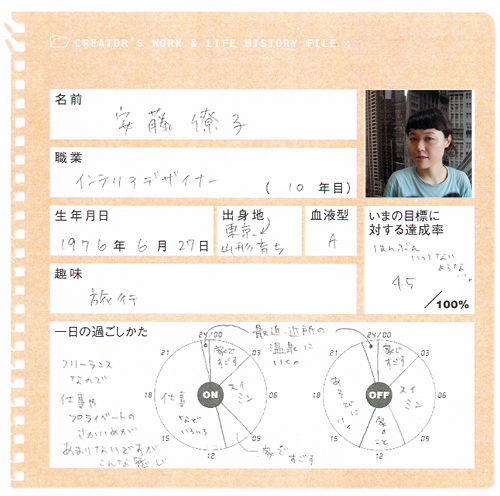 CREATOR'S WORK & LIFE HISTORY FILE :
名前
安藤僚子
職業
インテリアデザイナー
( 10 年目)
生年月日
1976 年 6 月 27 日
出身地
東京→
山形育ち
血液型
A
いまの目標に
対する達成率
はんぶん
いってない
ような…。
45
/100%
趣味
旅行
一日の過ごしかた
フリーランス
なので
仕事と
プライベートの
さかいめが
あまりないですが
こんな感じ
最近、近所の
温泉に
いく。
24/00
03
06
09
12
15
18
21
ON
家で
すごす
スイ
ミン
仕事
など
いろいろ
家で
すごす
24/00
03
06
09
12
15
18
21
OFF
家で
すごす
スイ
ミン
家の
こと
あそびに
いく